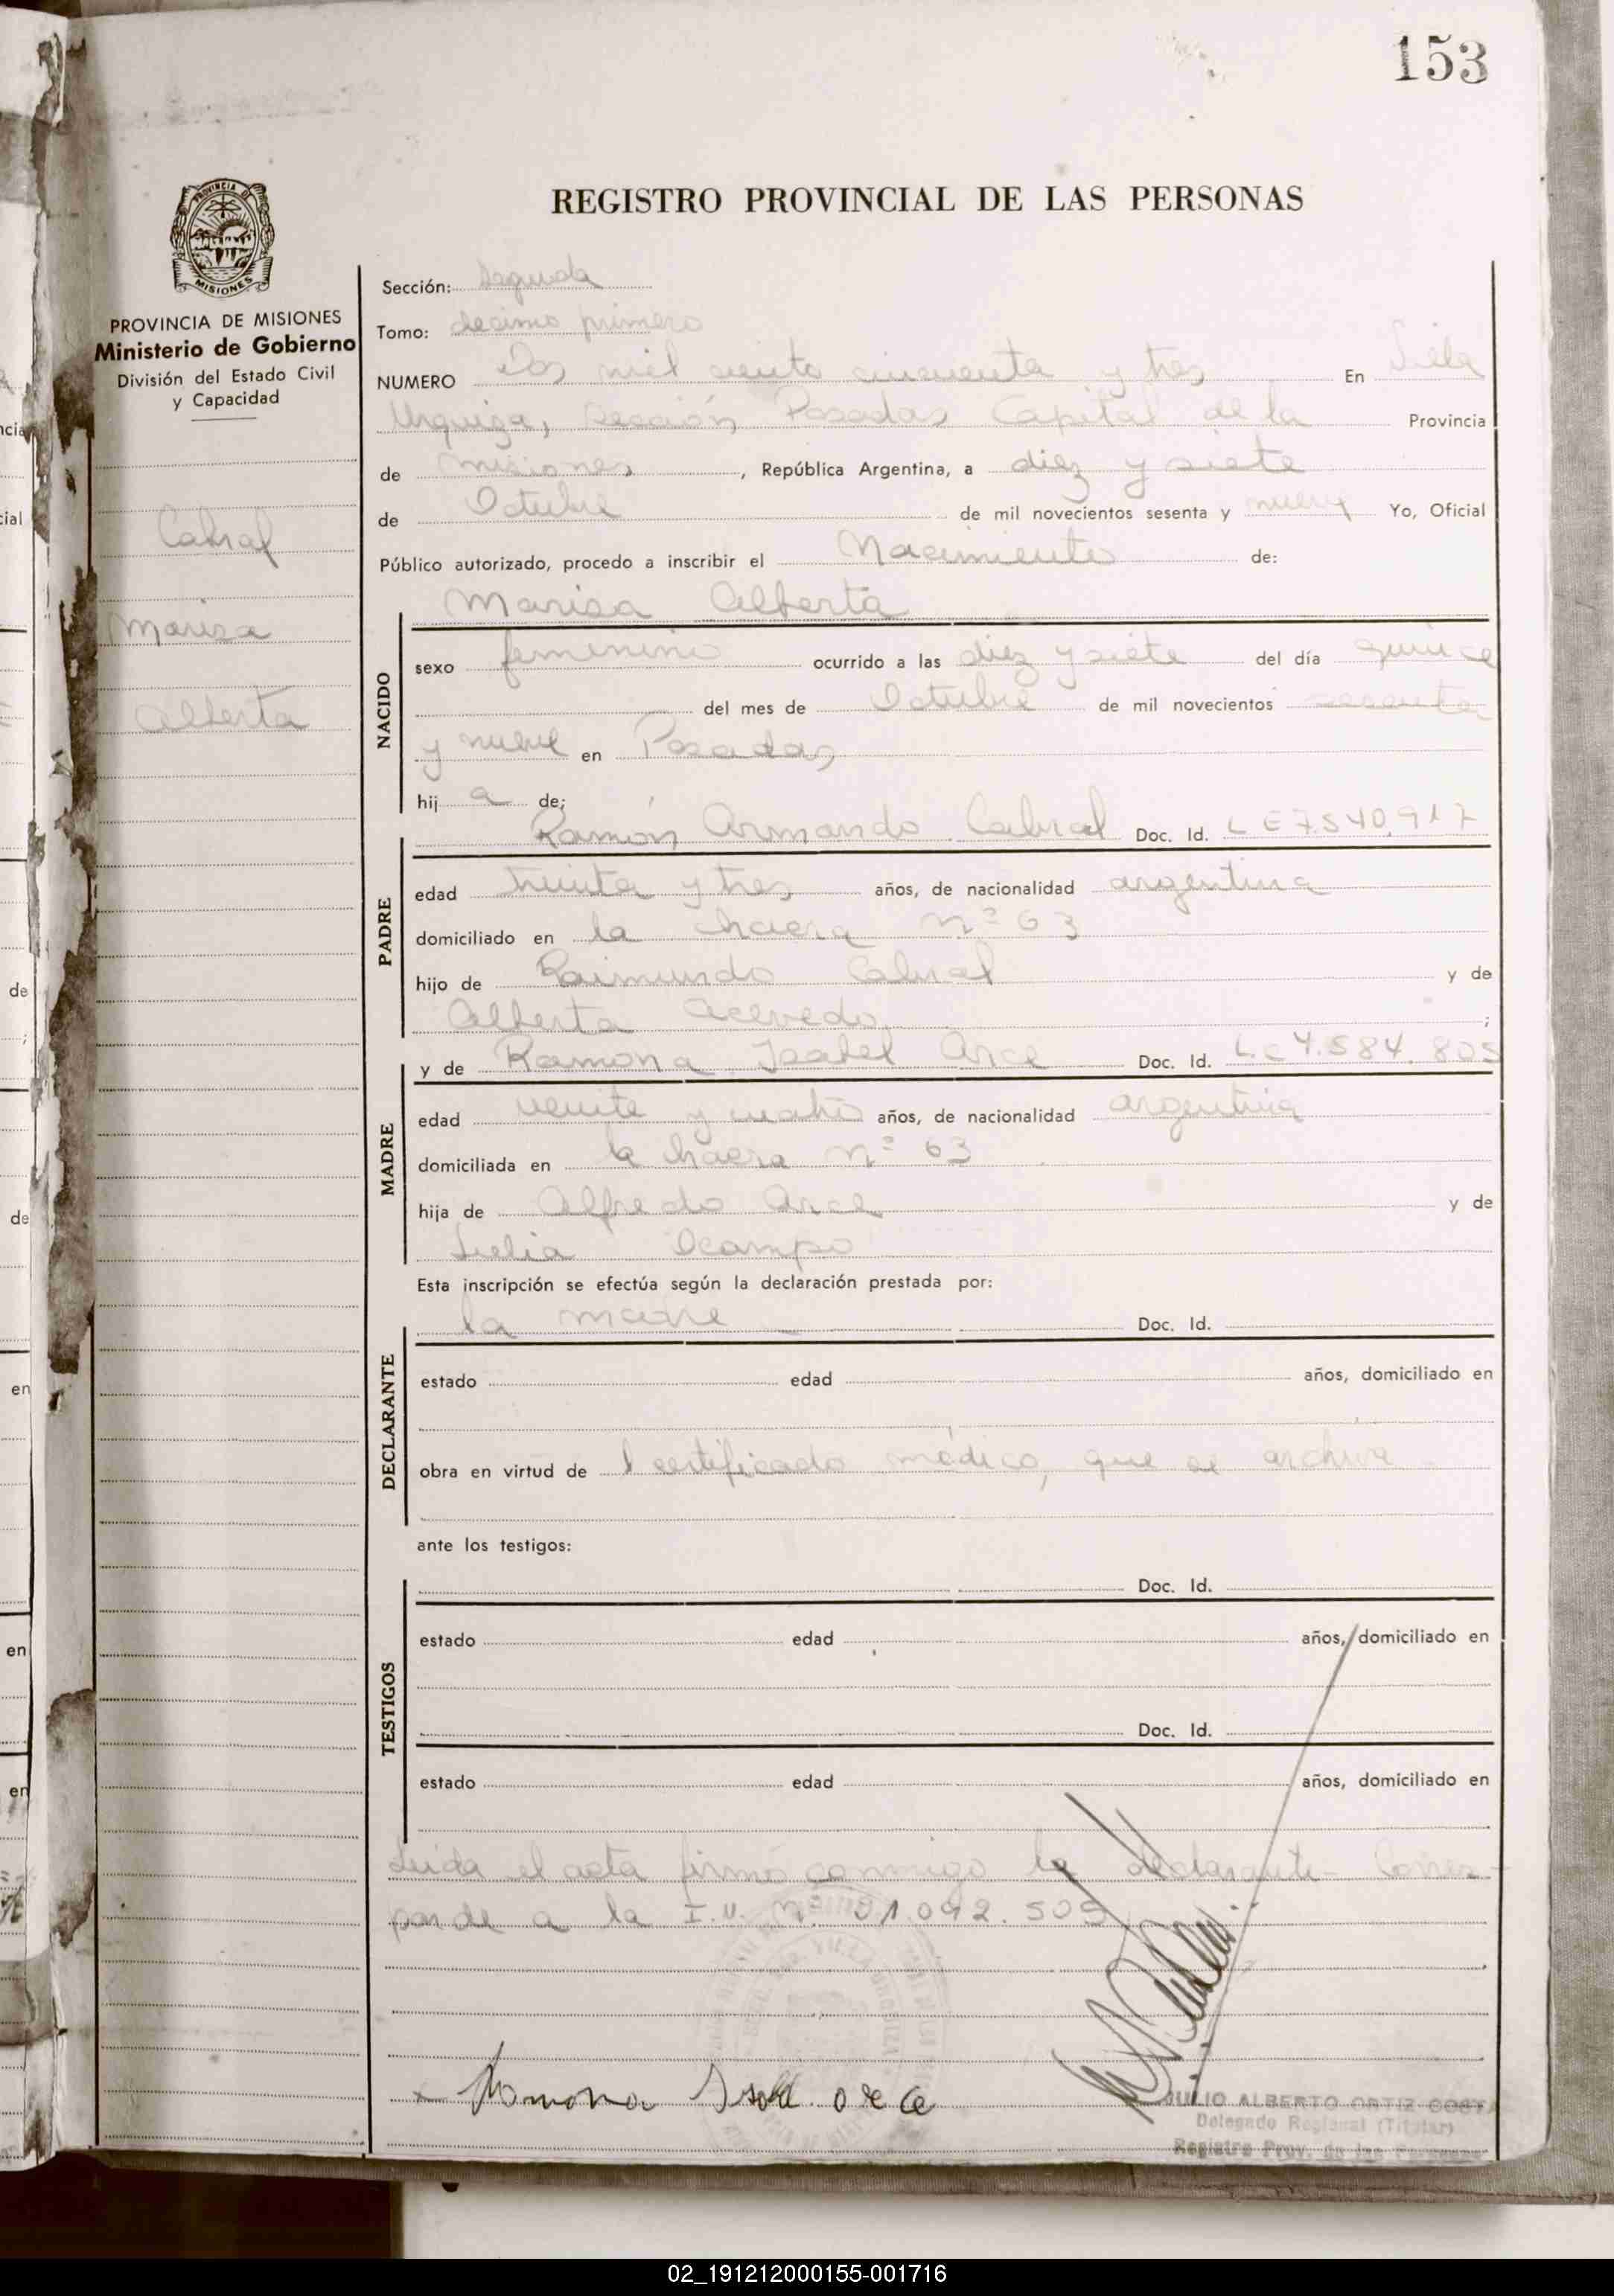 153
REGISTRO PROVINCIAL DE LAS PERSONAS
PROVINCIA DE MISIONES
PROVINCIA DE MISIONES
Ministerio de Gobierno
División del Estado Civil
y Capacidad
Cabral
Marisa
Alberta
Sección: Segunda
Tomo: decimo primero
NUMERO Dos mil ciento cincuenta y tres En Villa
Urquiza, Sección Posadas Capital de la Provincia
de Misiones, República Argentina, a diez y siete
de Octubre de mil novecientos sesenta y nueve Yo, Oficial
Público autorizado, procedo a inscribir el Nacimiento de:
Marisa Alberta
NACIDO
sexo femenino ocurrido a las diez y siete del día quince
del mes de Octubre de mil novecientos sesenta
y nueve en Posadas
hij a de;
Ramón Armando Cabral Doc. Id. L E 7.540.917
PADRE
edad treinta y tres años, de nacionalidad argentina
domiciliado en la chacra nº 63
hijo de Raimundo Cabral y de
Alberta Acevedo ;
y de Ramona Isabel Arce Doc. Id. L.C 4.584.805
MADRE
edad veinte y cuatro años, de nacionalidad argentina
domiciliada en la chacra nº 63
hija de Alfredo Arce y de
Ocampo
Esta inscripción se efectúa según la declaración prestada por:
la madre Doc. Id.
DECLARANTE
estado edad años, domiciliado en
obra en virtud de l certificado médico, que se archiva
ante los testigos:
Doc. Id.
TESTIGOS
estado edad años, domiciliado en
Doc. Id.
estado edad años, domiciliado en
Leida el acta firmó conmigo la declarante - Corres-
ponde a la I.U. Nº 21.092.509
Ramona Isabel arce
JULIO ALBERTO ORTIZ COSTA
Delegado Regional (Titular)
Registro Prov. de las Personas
02_191212000155-001716